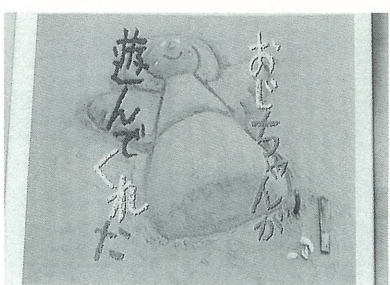 おじちゃんが
遊んでくれた